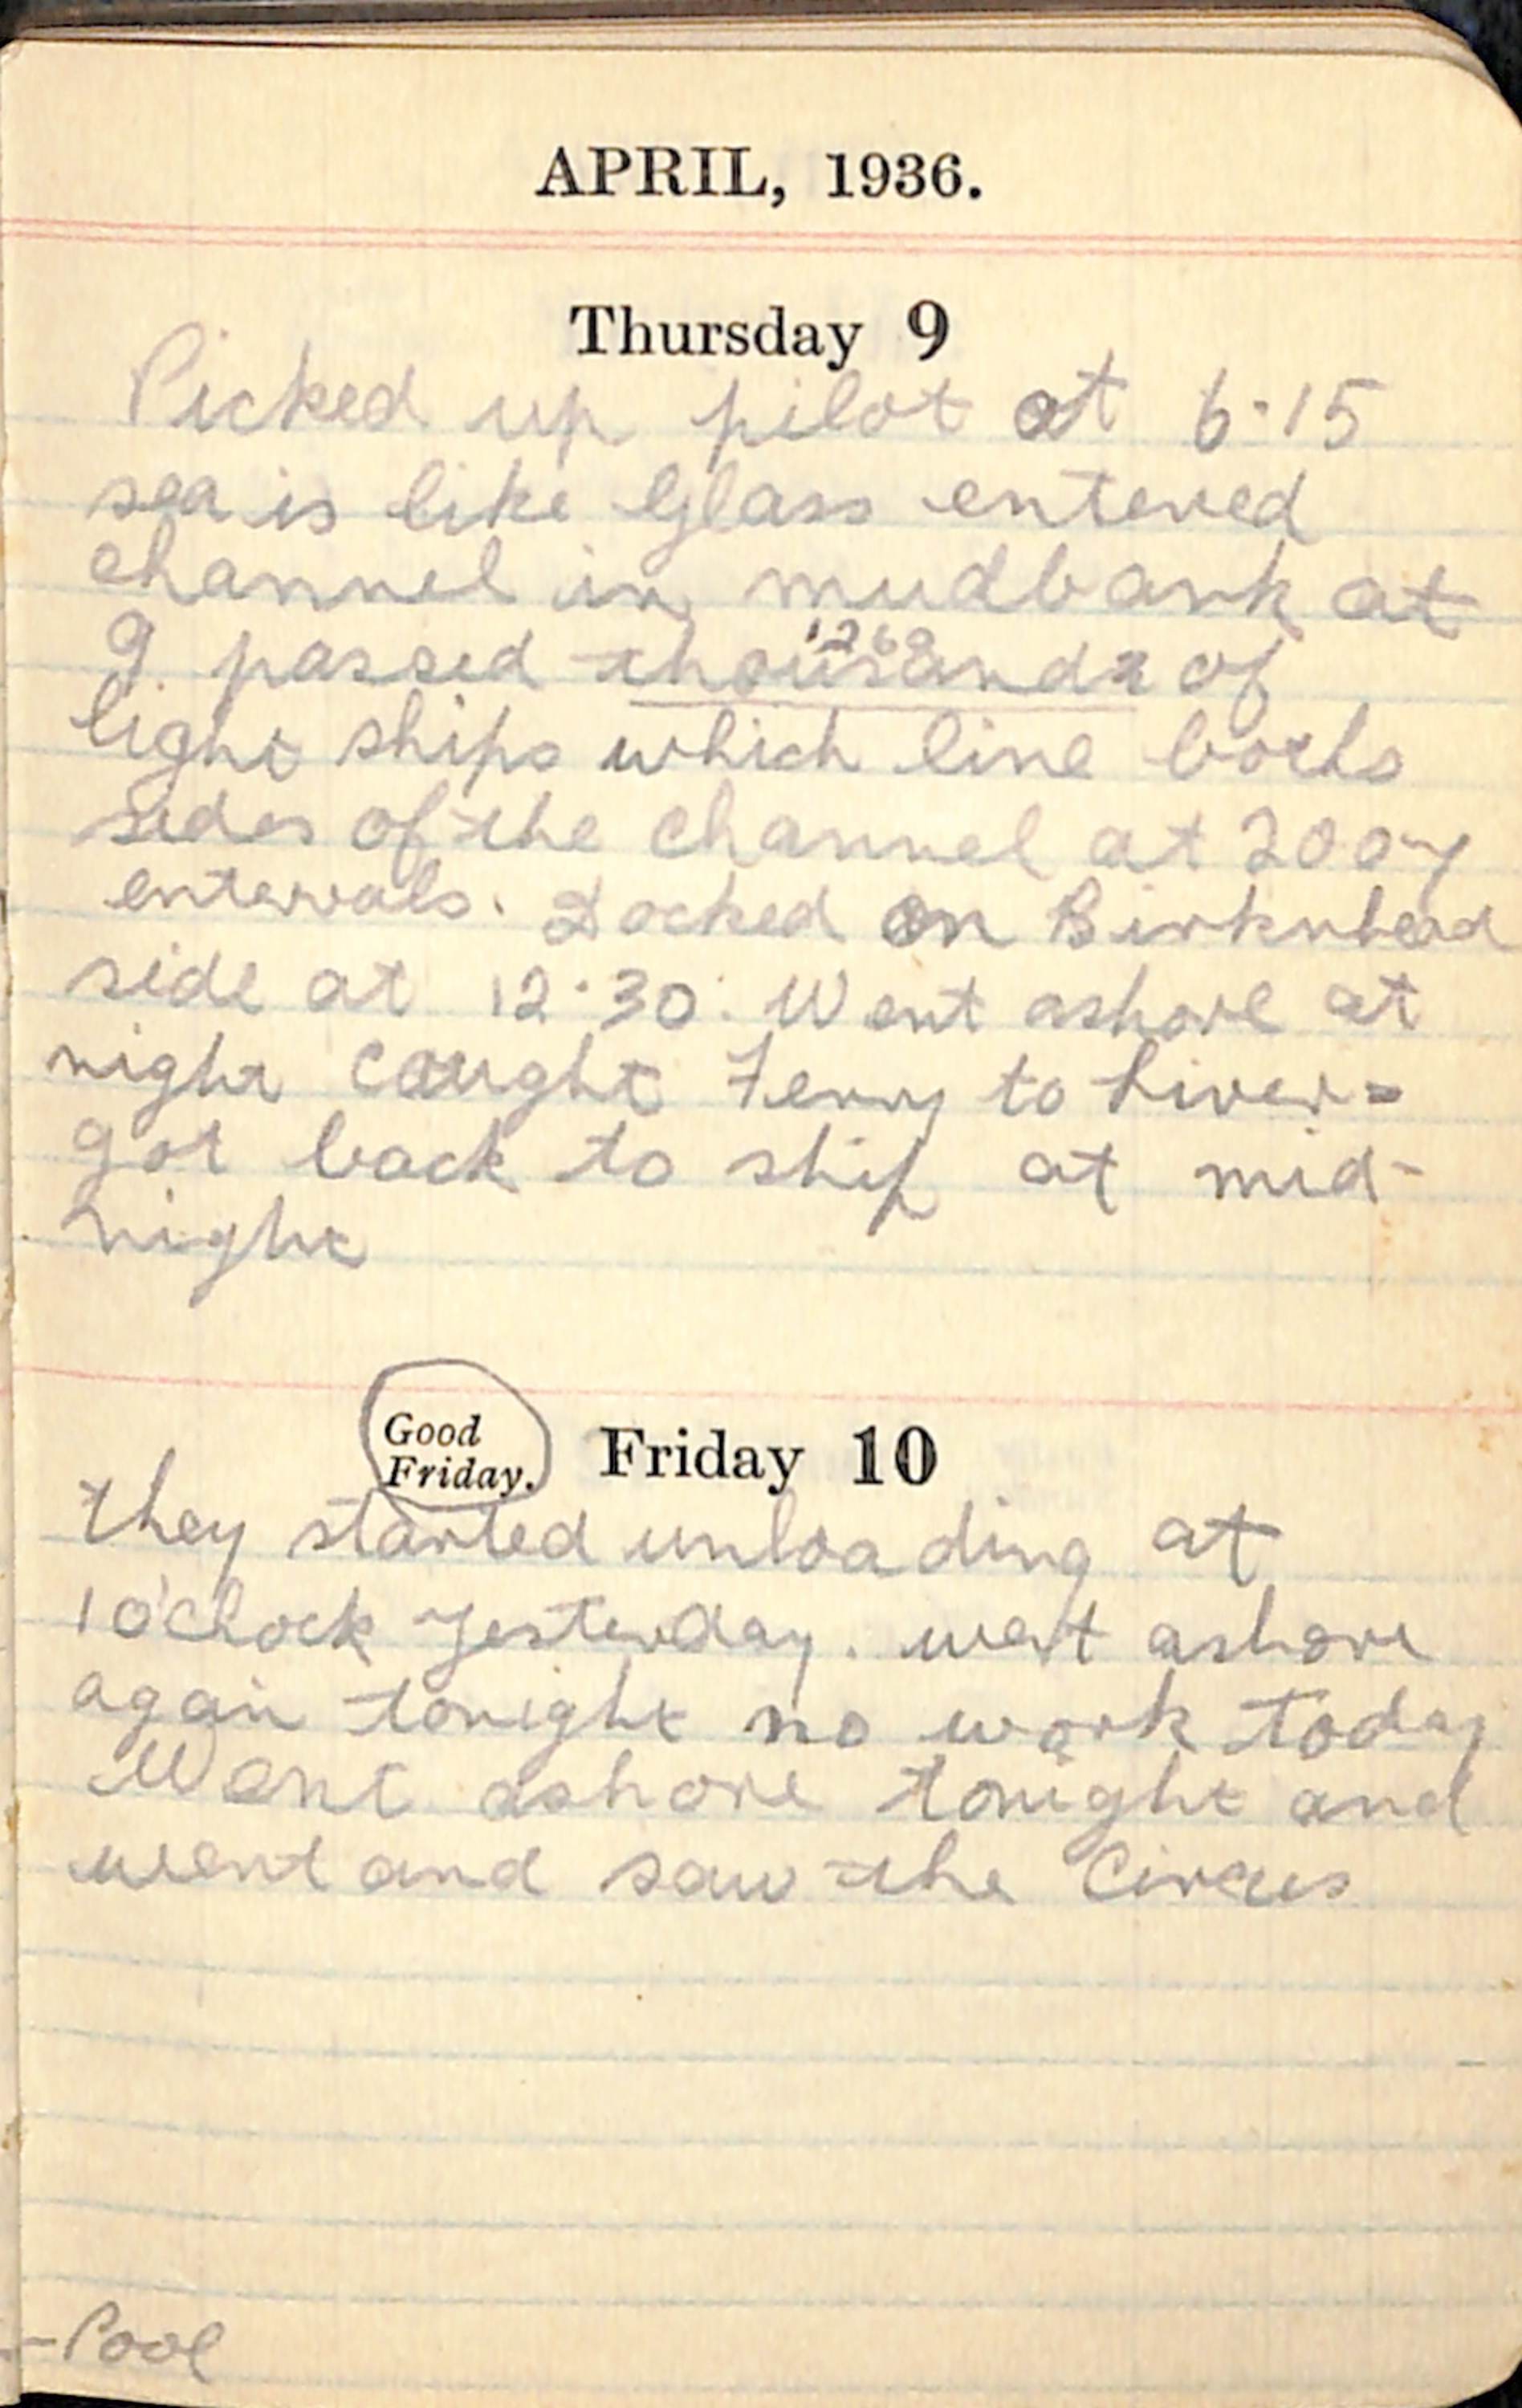 APRIL, 1936.
Thursday 9
Picked up pilot at 6·15
sea is like Glass entered
channel in mudbank at
9. passed thousands of
light ships which line boths
sides of the channel at 200y
entervals. Docked on Birknhead
side at 12·30. Went ashore at
night caught Ferry to Liver=
got back to ship at mid-
night
Good
Friday. Friday 10
they started unloading at
1 o'clock yesterday. went ashore
again tonight no work today
Went ashore tonight and
went and saw the Circus
-Pool